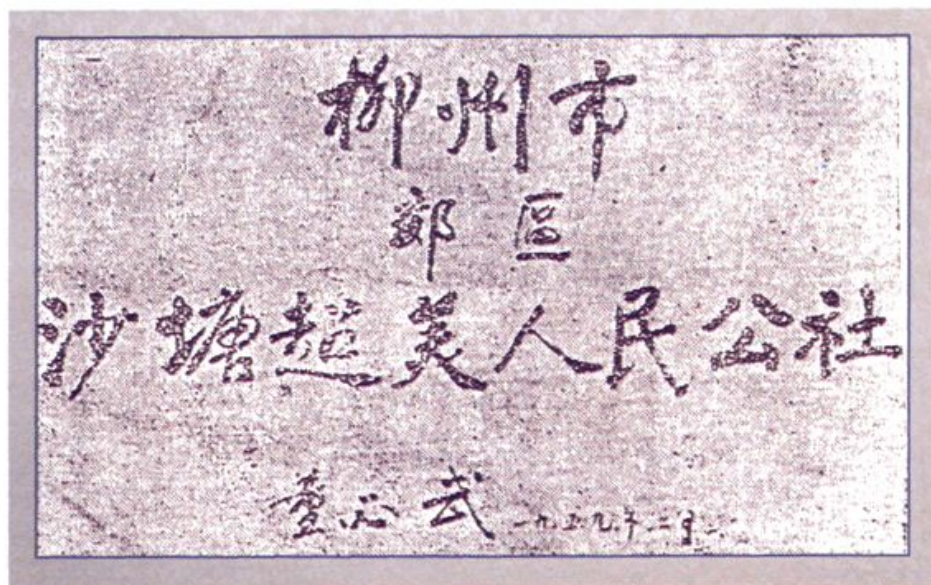 柳州市
郊區
沙塘超美人民公社
董必武 一九五九年二月